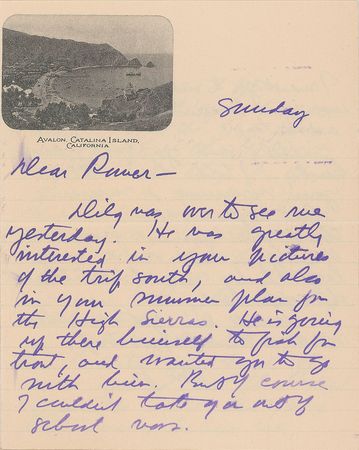 AVALON, CATALINA ISLAND,
CALIFORNIA
Sunday
Dear Rumer—
Dilg was over to see me
yesterday. He was greatly
interested in your pictures
of the trip south, and also
in your summer plan for
the High Sierras. He is going
up there himself to fish for
trout, and wanted you to go
with him. But of course
I couldn't take you out of
school now.